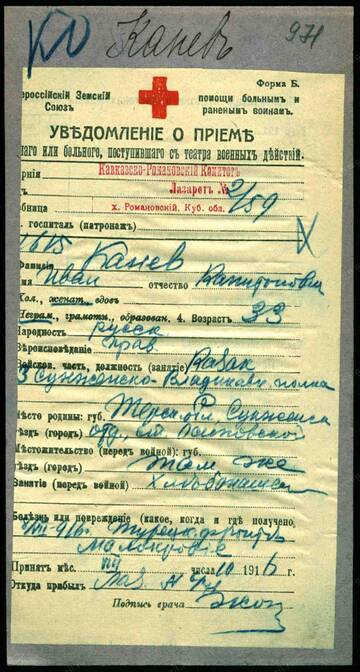 КО Канев 971
Форма Б.
ероссійскій Земскій
Союзъ
помощи больнымъ и
раненымъ воинамъ.
УВѢДОМЛЕНІЕ О ПРІЕМѢ
наго или больного, поступившаго съ театра военныхъ дѣйствій.
Кавказско-Романовскій Комитетъ
Лазаретъ № 2/59
х. Романовскій, Куб. обл.
госпиталь (патронажъ)
1615
Канев
Иван отчество Капитонович
Хол., женат., вдовъ
Неграм., грамотн., образован. 4. Возрастъ 33
Народность русск.
Вѣроисповѣданіе Прав
войсков. часть, должность (занятіе) Казак
3 Сунженско-Владикавк. полка
Мѣсто родины: губ. Терск. обл. Сунженск
ѣздъ (городъ) отд. ст.
Мѣстожительство (передъ войной): губ.
ѣздъ (городъ) Там же
Занятіе (передъ войной) Хлебопашец
Болѣзнь или поврежденіе (какое, когда и гдѣ получено,
Турецк. фронт
малокровіе
Принятъ мѣс. числа 10 1916 г.
Откуда прибылъ
Подпись врача